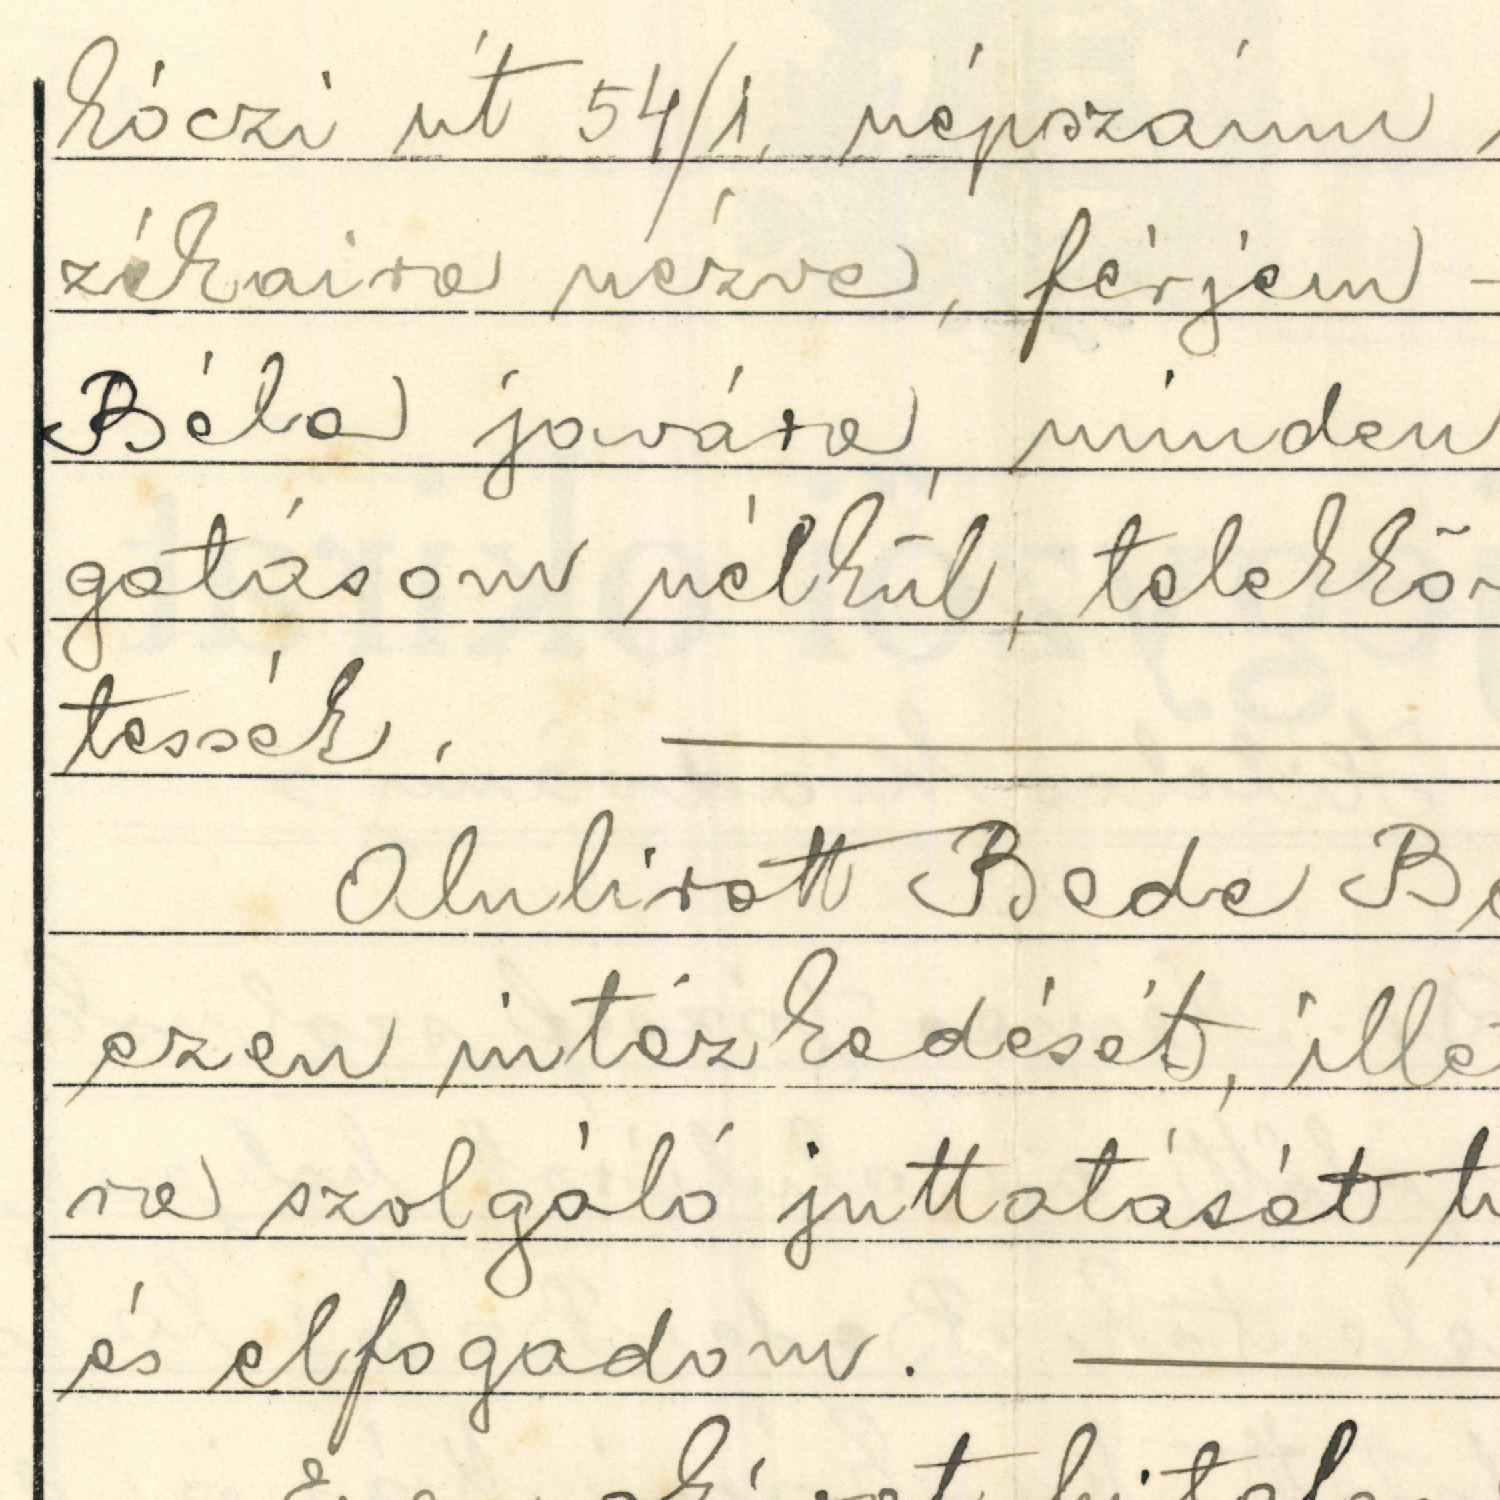 kóczi út 54/1. népszámu
zékaira nézve, férjem –
Béla javára, minden
gatásom nélkül, telekkö
tessék.
Alulirott Bede Bé
ezen intézkedését, illé
re szolgáló juttatását tu
és elfogadom.